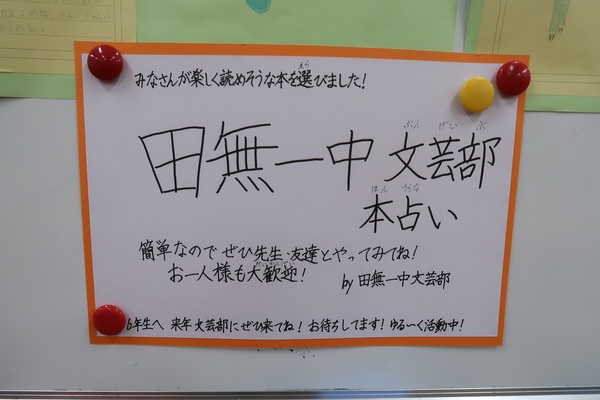 みなさんが楽しく読めそうな本を選びました!
えら
ぶん げい ぶ
田無一中 文芸部
ほん うらな
本占い
簡単なので ぜひ先生・友達とやってみてね!
お一人様も大歓迎!
by 田無一中文芸部
6年生へ 来年 文芸部にぜひ来てね! お待ちしてます! ゆる〜く活動中!